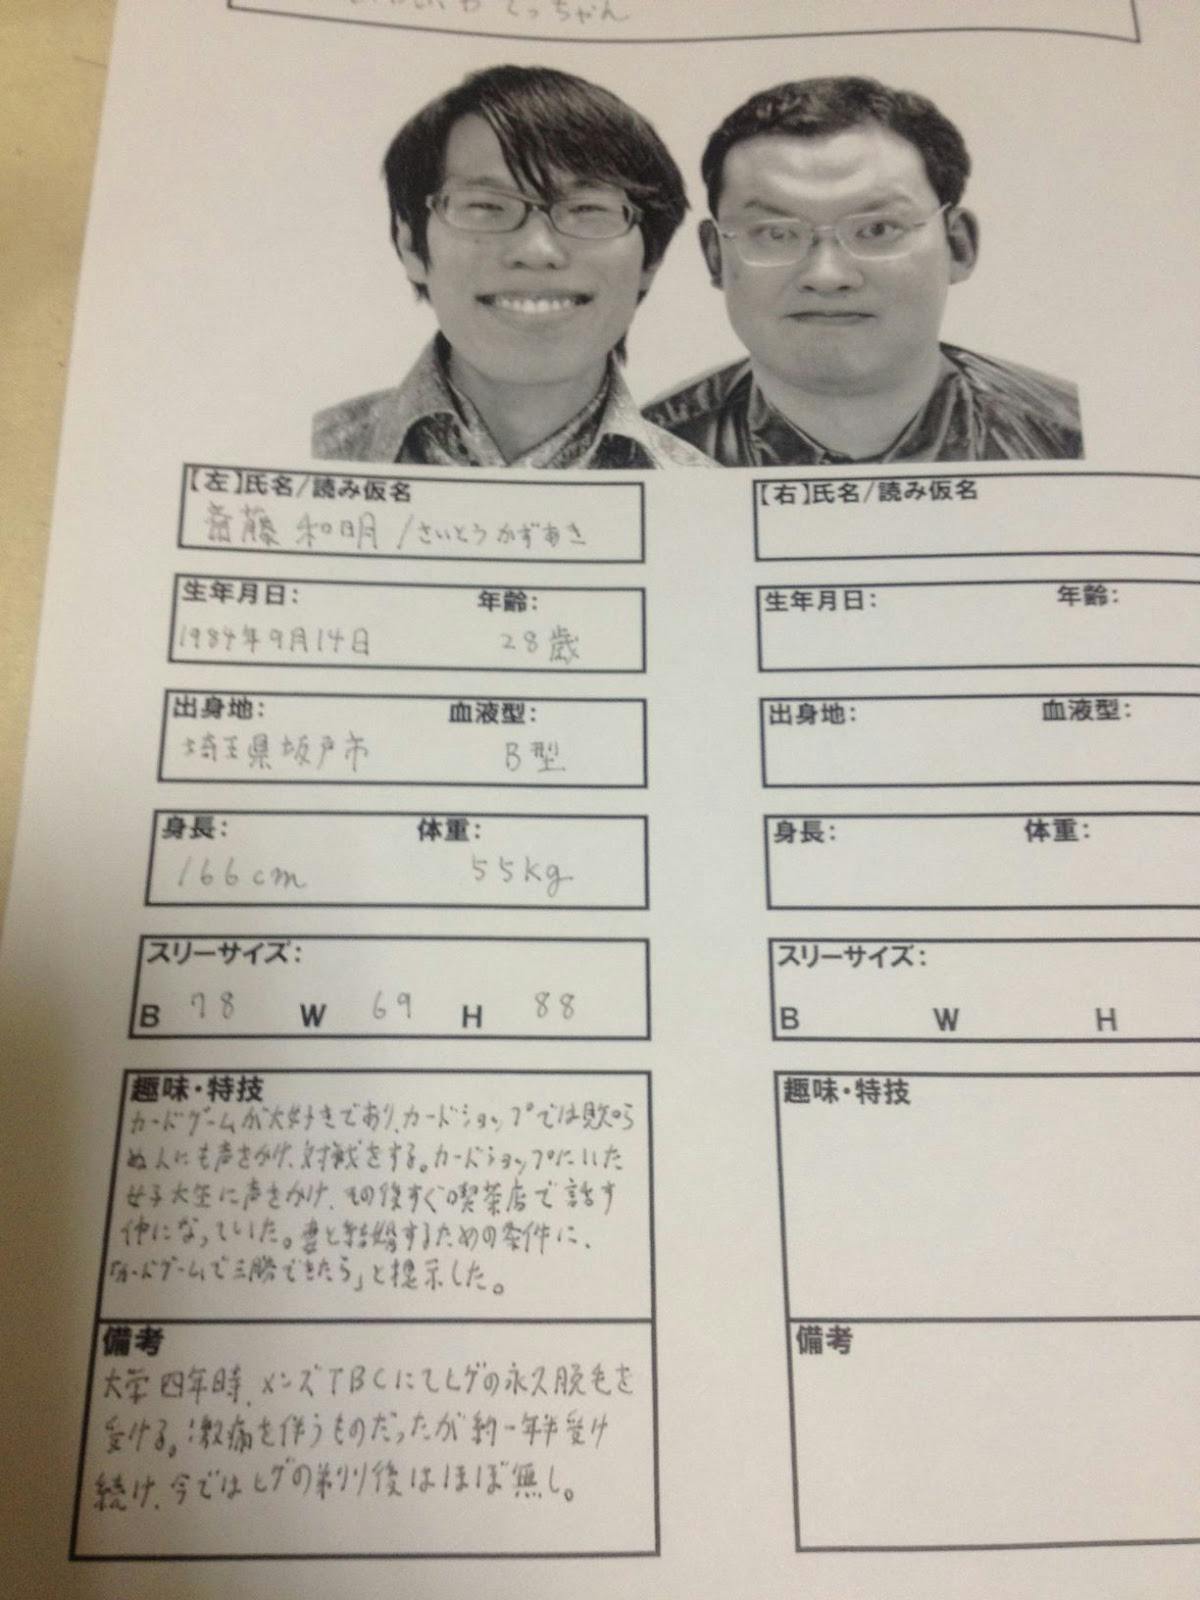 てっちゃん
【左】氏名/読み仮名
斎藤 和明 / さいとう かずあき
生年月日: 年齢:
1984年9月14日 28歳
出身地: 血液型:
埼玉県坂戸市 B型
身長: 体重:
166cm 55kg
スリーサイズ:
B 78 W 69 H 88
趣味・特技
カードゲームが大好きであり、カードショップでは見知ら
ぬ人にも声をかけ、対戦をする。カードショップにいた
女子大生に声をかけ、その後すぐ喫茶店で話す
仲になっていた。妻と結婚するための条件に、
「カードゲームで三勝できたら」と提示した。
備考
大学四年時、メンズTBCにてヒゲの永久脱毛を
受ける。激痛を伴うものだったが約一年半受け
続け、今ではヒゲの剃り後はほぼ無し。
【右】氏名/読み仮名
生年月日: 年齢:
出身地: 血液型:
身長: 体重:
スリーサイズ:
B W H
趣味・特技
備考